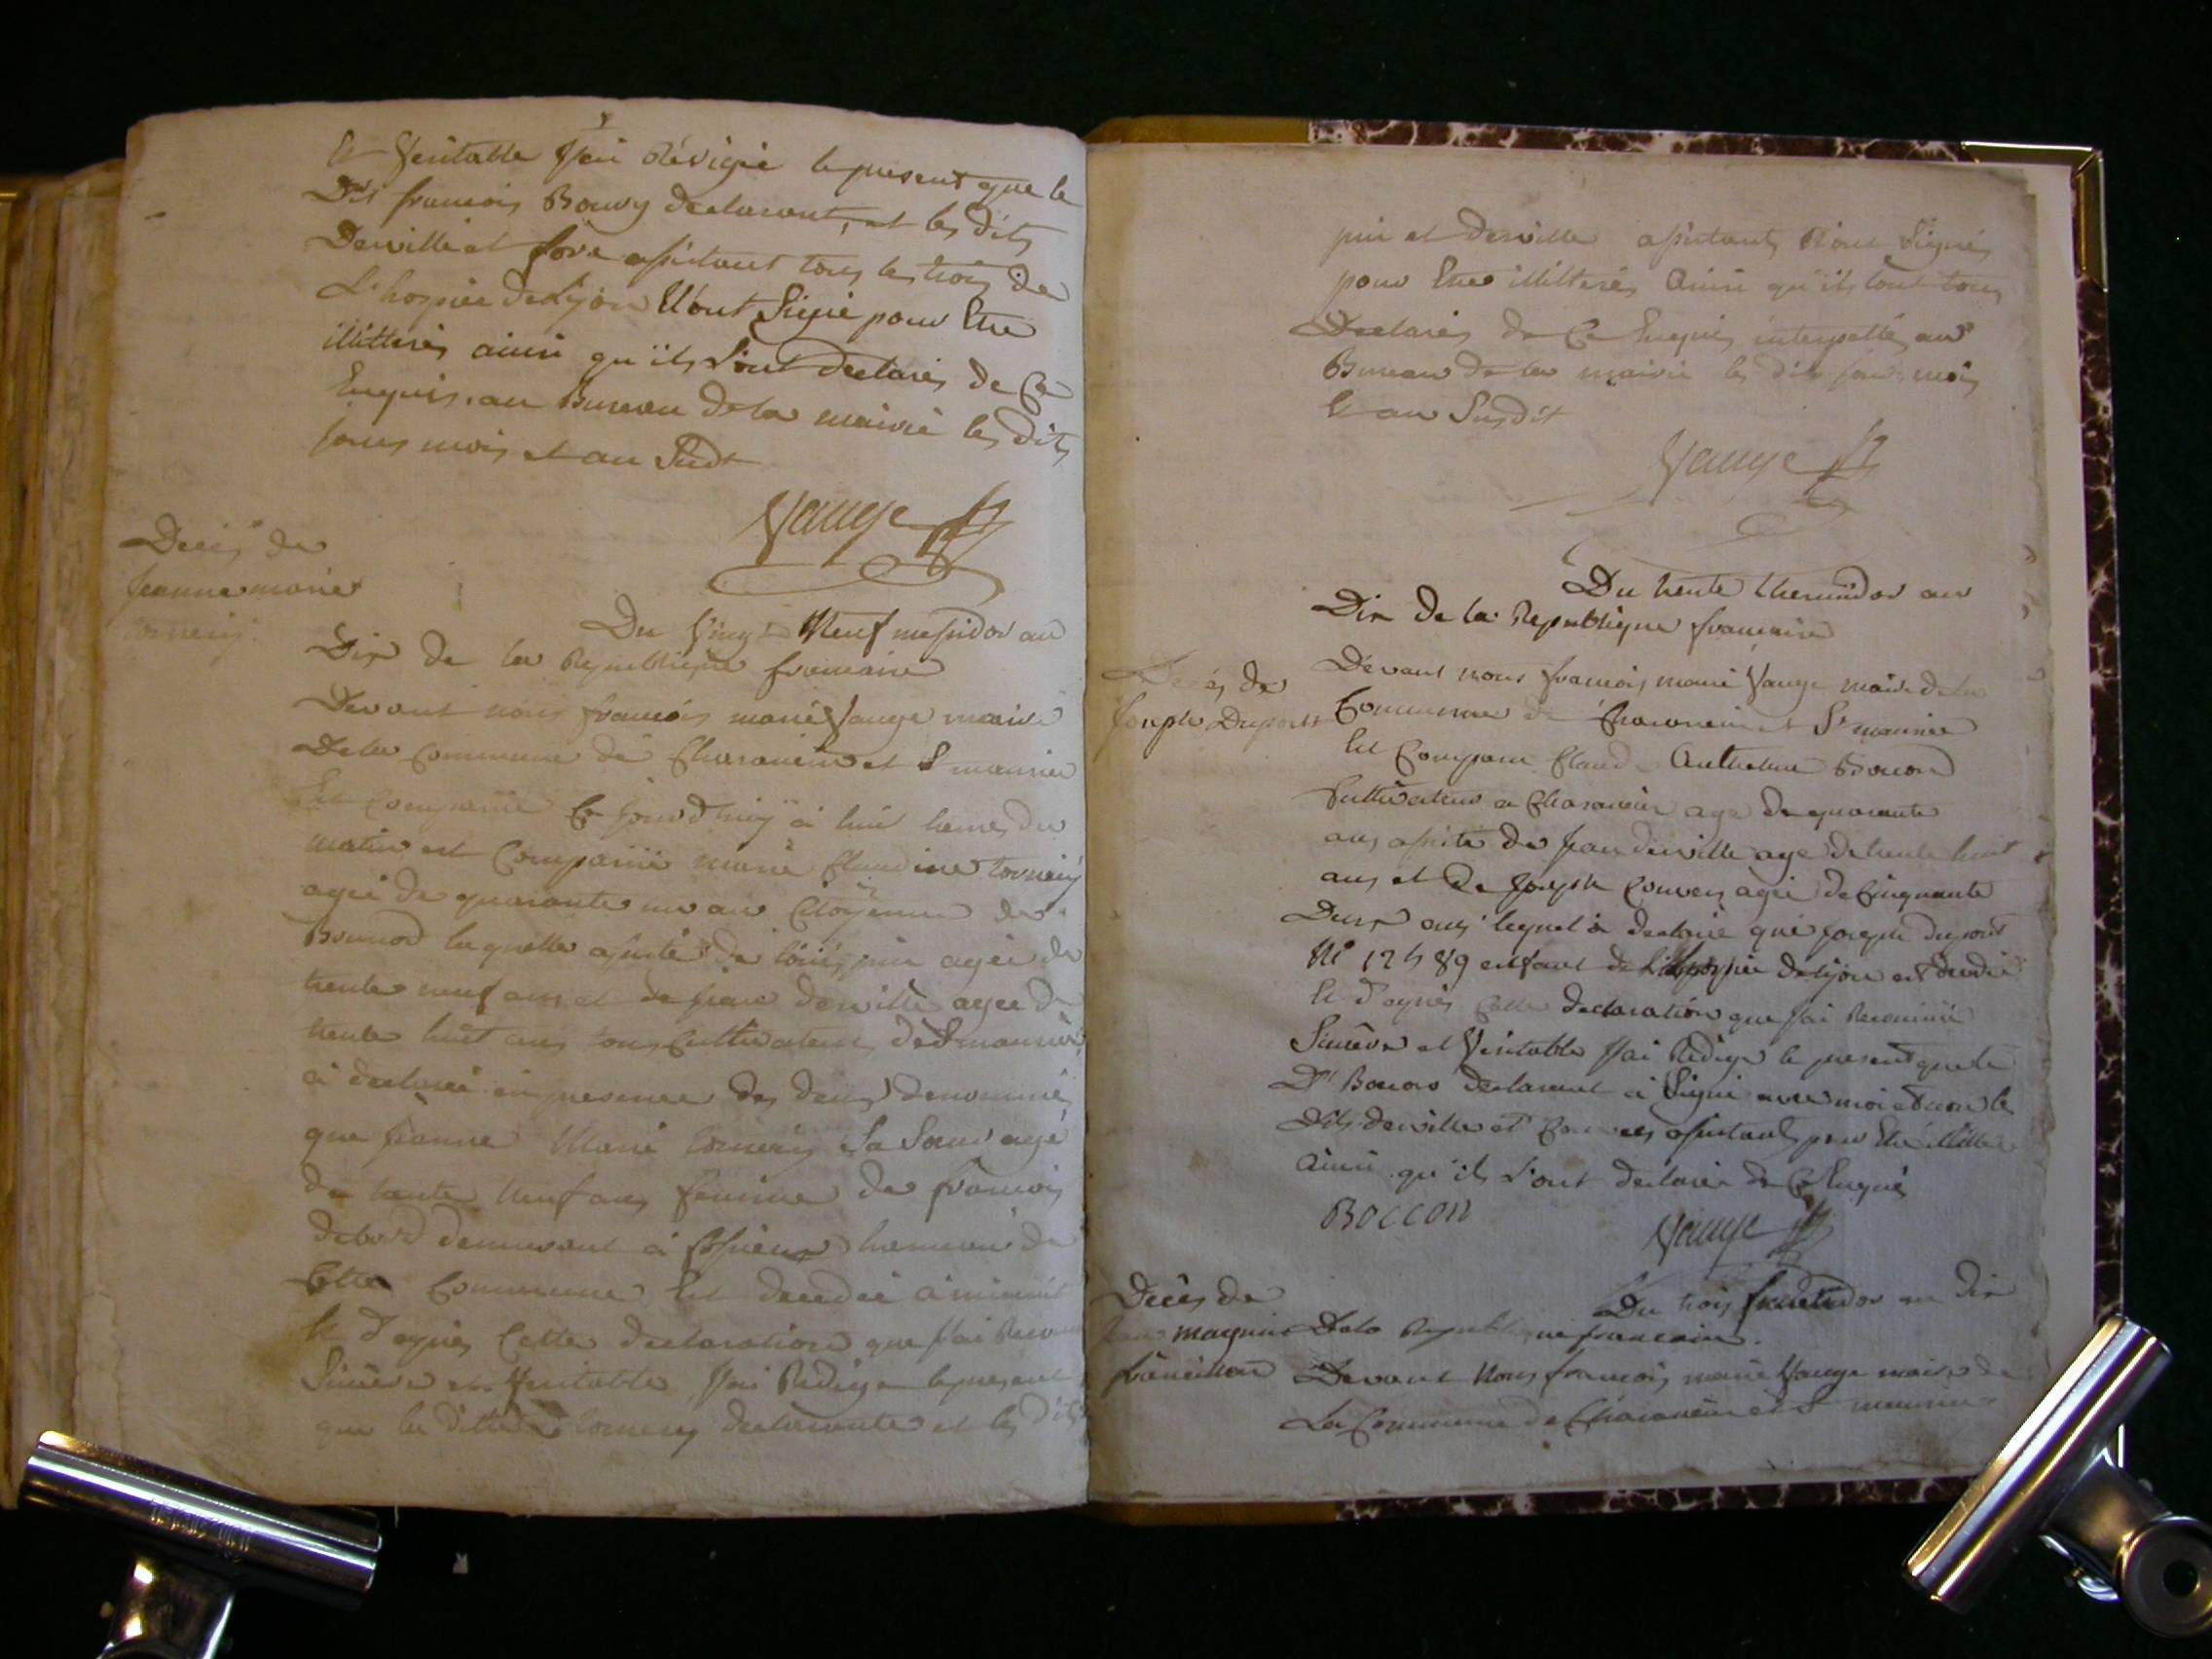 Et Veritable J'ai Rédigé le present que le
Dit francois Bouvy declarant, et les dits
Derville et fore assistant tous les trois de
L'hospice de Lyon N'ont Signé pour Etre
illitterés ainsi qu'ils L'ont declarés de Ce
Enquis. au Bureau de la mairie les dits
jours mois et an Susdt
Vauge
Décès de
Jeanne marie
Tornery
Du Vingt Neuf messidor an
Dix de la Republique francaise
Devant nous francois marie Vauge maire
De la Commune de Charancin et St maurice
Est Comparue Ce jourd'huy à huit heures du
matin est Comparüe marie Claudine tornery
agée de quarante un ans Citoyenne de
Brenod laquelle assisté de Loüis pin agée de
trente neuf ans et de jean derville agée de
trente huit ans tous Cultivateurs de St maurice
à declaré en presence des deux denommés
que jeanne Marie tornery Sa Soeur agé
de trente Neuf ans femme de francois
debord demeurant à hameau de
Cette Commune Est decedée à minuit
Et D'après Cette declaration que J'ai
Sincère et Veritable J'ai Redigé le present
que la ditte tornery declarante et les dits
pin et derville assistants N'ont Signés
pour Etre illitterés Ainsi qu'ils L'ont tous
Declarés de Ce Enquis interpellés au
Bureau de la mairie les dits jour mois
Et an Susdit
Vauge
Du trente thermidor an
Dix de la Republique francaise
Décés de
Joseph Dupont
Devant nous francois marie Vauge maire de la
Commune de Charancin et St maurice
Est Comparu Claude Anthelme Bocon
Cultivateur a Charancin agé de quarante
ans assité de jean derville agé de trente huit
ans et De Joseph Convers agée de Cinquante
Deux ans lequel à declaré que joseph dupont
N° 12489 enfant de L'hospice de Lyon est decedé
Et D'après Cette declaration que J'ai
Sincère et Veritable J'ai Rédigé le present que le
Dt Bocon declarant à Signé avec moi et non les
Dits derville et Convers assistants pour Etre
Ainsi qu'ils L'ont declarés de Ce Enquis
BOCCON
Vauge
Décès de
magnin
francillon
Du trois fructidor an Dix
De la Republique francaise.
Devant Nous francois marie Vauge maire de
La Commune de Charancin et St maurice